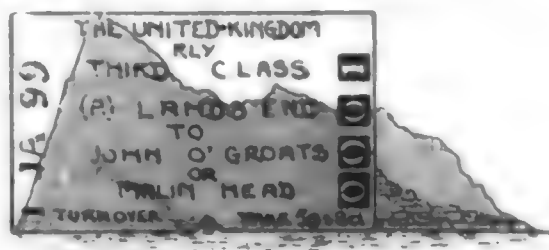 THE UNITED KINGDOM
RLY
THIRD CLASS
(A) LANDS END
TO
JOHN O'GROATS
OR
MALIN HEAD
TURNOVER